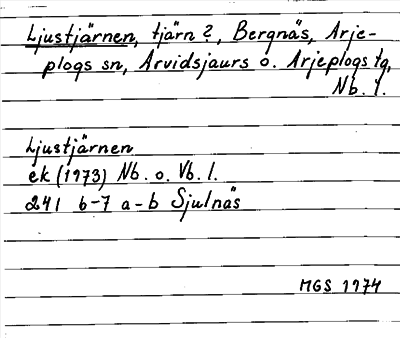 Ljustjärnen, tjärn 2, Bergnäs, Arje-
plogs sn, Arvidsjaurs o. Arjeplogs tg,
Nb. l.
Ljustjärnen
ek (1973) Nb. o. Vb. l.
241 b-7 a-b Sjulnäs
MGS 1974